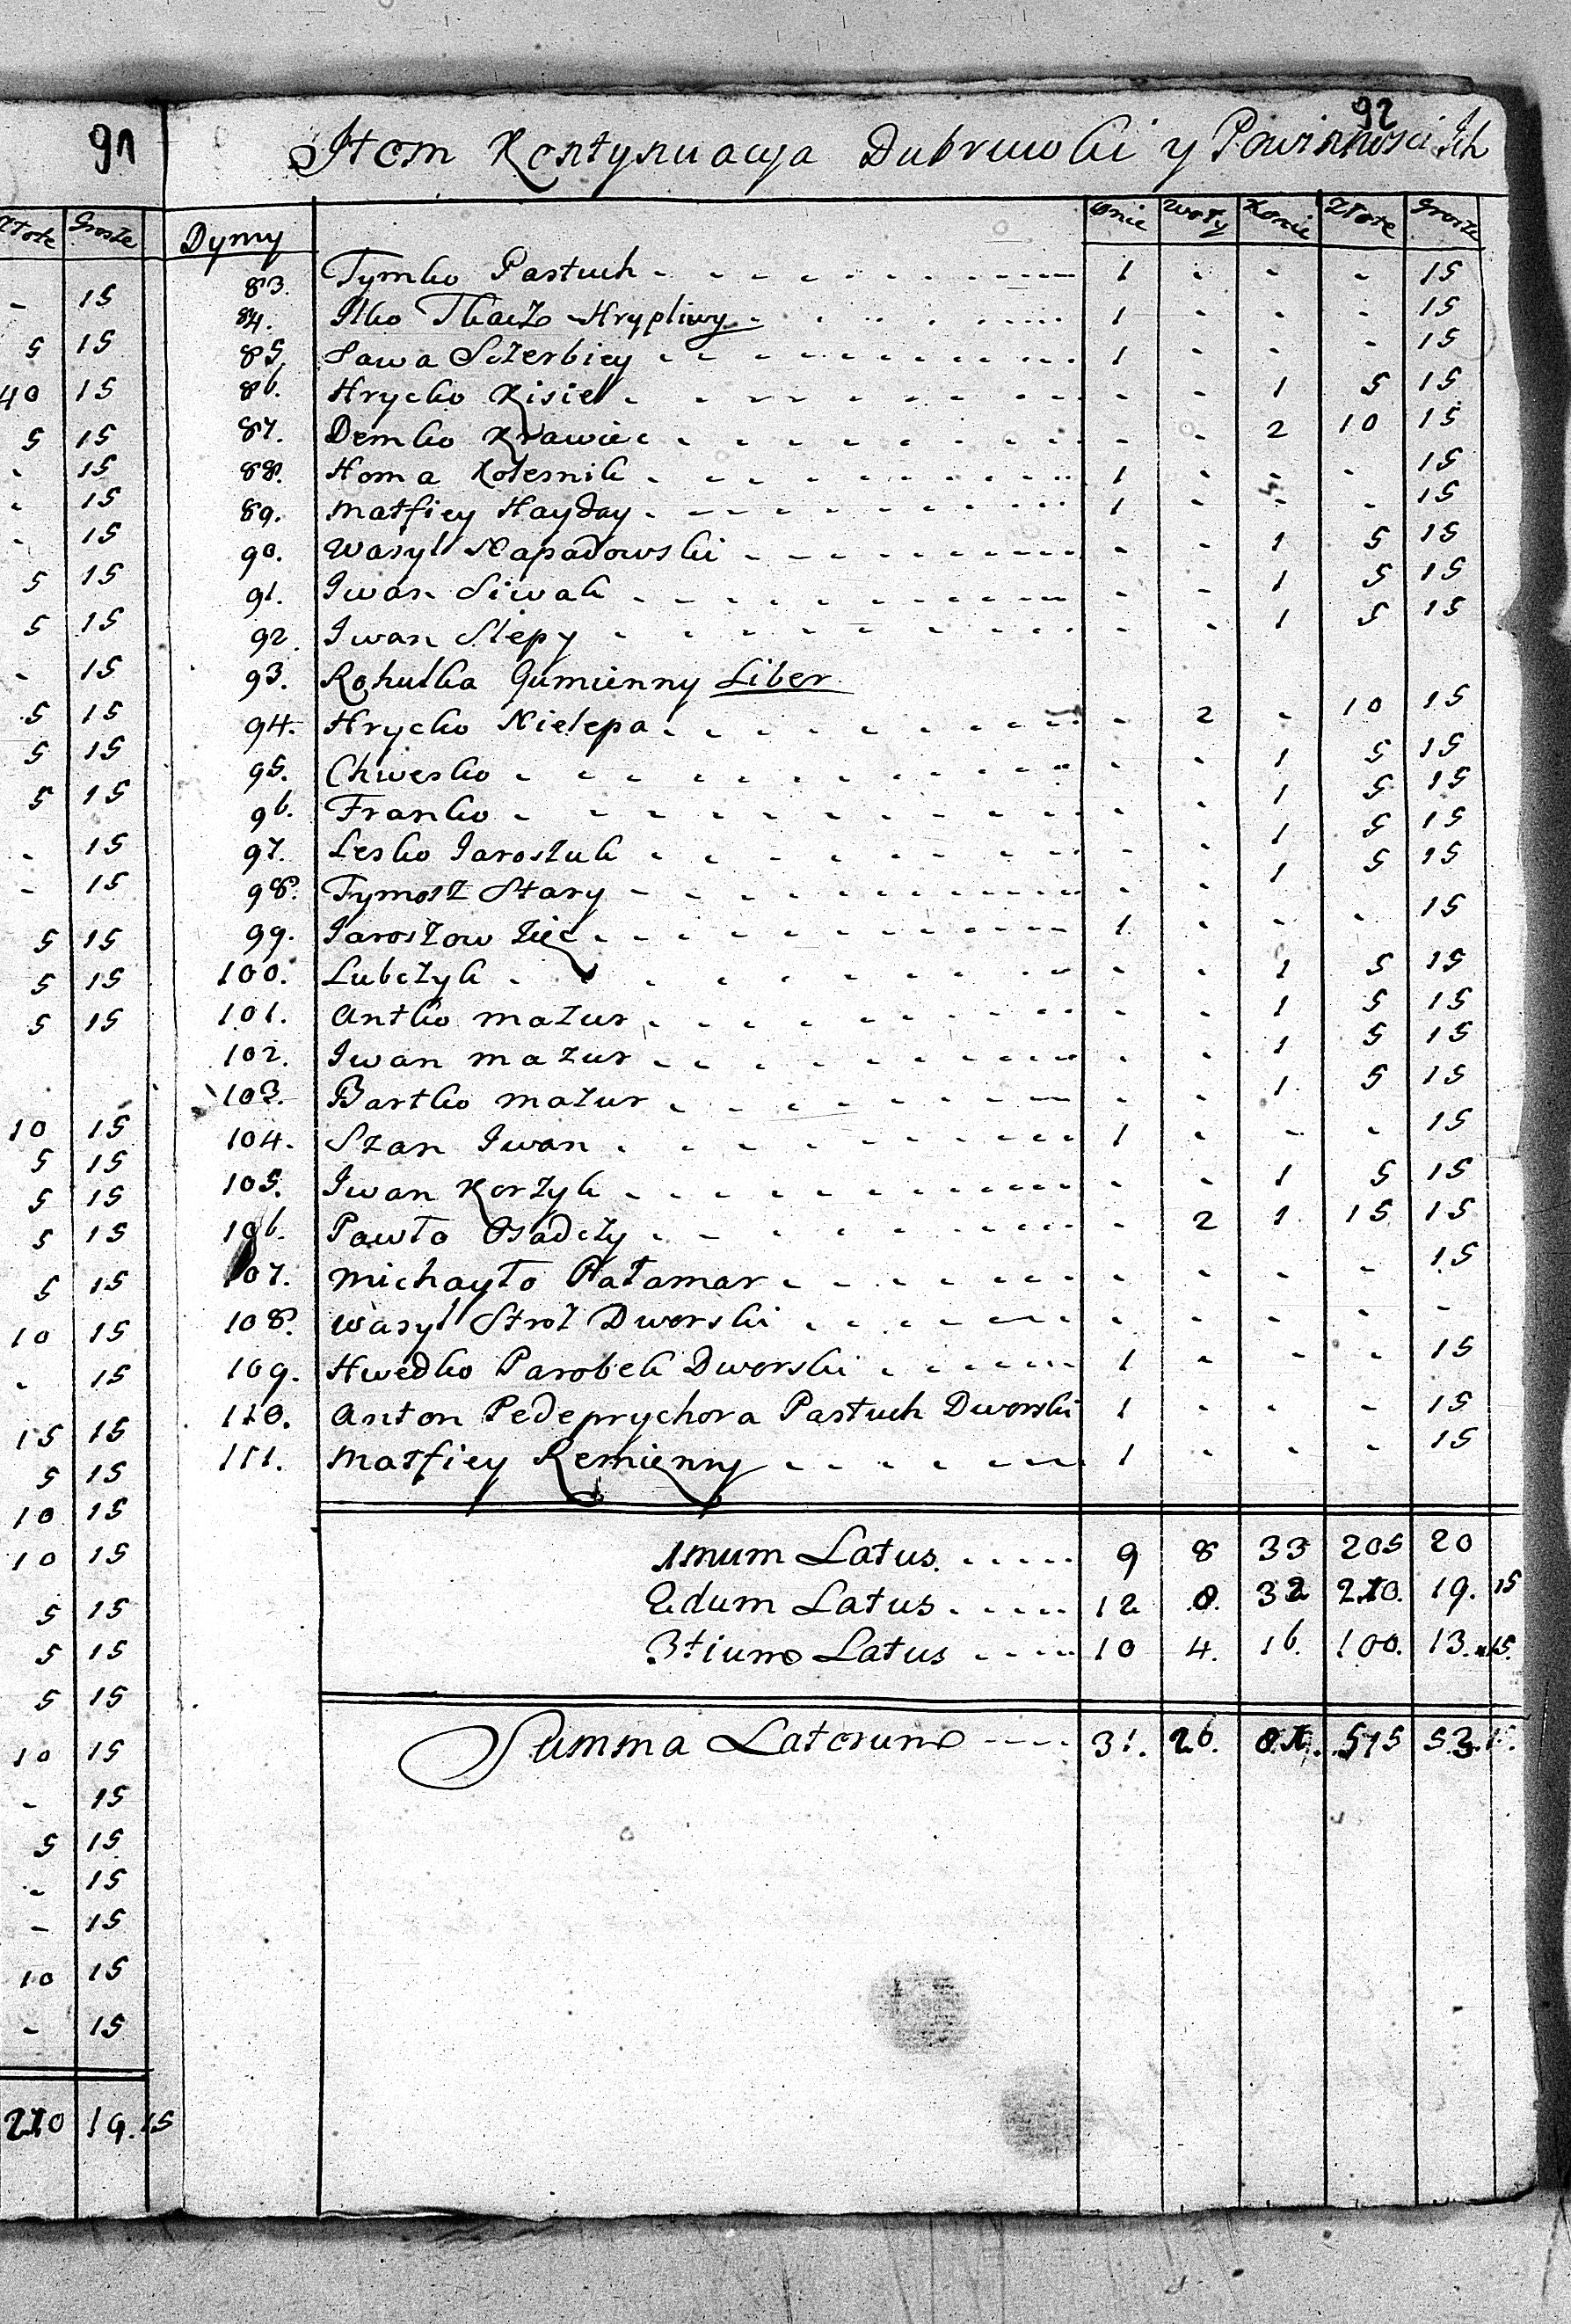 91
Złote Grosze
- 15
5 15
40 15
5 15
- 15
- 15
- 15
5 15
5 15
- 15
5 15
5 15
5 15
- 15
- 15
5 15
5 15
5 15
10 15
5 15
5 15
5 15
5 15
10 15
- 15
15 15
5 15
10 15
10 15
5 15
5 15
5 15
10 15
- 15
5 15
- 15
- 15
10 15
- 15
210 19. 15
92
Item Kontynuacya Dubrowki y Powinnosci Ich
Dymy Woły Konie Złote Grosze
83. Tymko Pastuch 1 - - - 15
84. Ilko Tkacz Hrypliwy 1 - - - 15
85. Sawa Szczerbiey 1 - - - 15
86. Hrycko Kisiel - - 1 5 15
87. Demko Krawiec - - 2 10 15
88. Homa Kolesnik 1 - - - 15
89. Matfiey Hayday 1 - - - 15
90. Wasyl Napadowski - - 1 5 15
91. Iwan Siwak - - 1 5 15
92. Iwan Slepy - - 1 5 15
93. Rohulka Gumienny Liber
94. Hrycko Nielepa - 2 - 10 15
95. Chwesko - - 1 5 15
96. Franko - - 1 5 15
97. Lesko Jaroszuk - - 1 5 15
98. Tymosz Stary - - 1 5 15
99. Jaroszow Zięc 1 - - - 15
100. Lubczyk - - 1 5 15
101. Antko Mazur - - 1 5 15
102. Iwan Mazur - - 1 5 15
103. Bartko Mazur - - 1 5 15
104. Szan Iwan 1 - - - 15
105. Iwan Korzyk - - 1 5 15
106. Pawło Osadczy - 2 1 15 15
107. Michayło Pałamar - - - - 15
108. Wasyl Stroz Dworski - - - - -
109. Hwedko Parobek Dworski 1 - - - 15
110. Anton Pedeprychora Pastuch Dworski 1 - - - 15
111. Matfiey Remienny 1 - - - 15
1mum Latus 9 8 33 205 20
2dum Latus 12 8. 32 210. 19. 15
3tium Latus 10 4. 16. 100. 13. 15.
Summa Laterum 31. 26. 515 53.